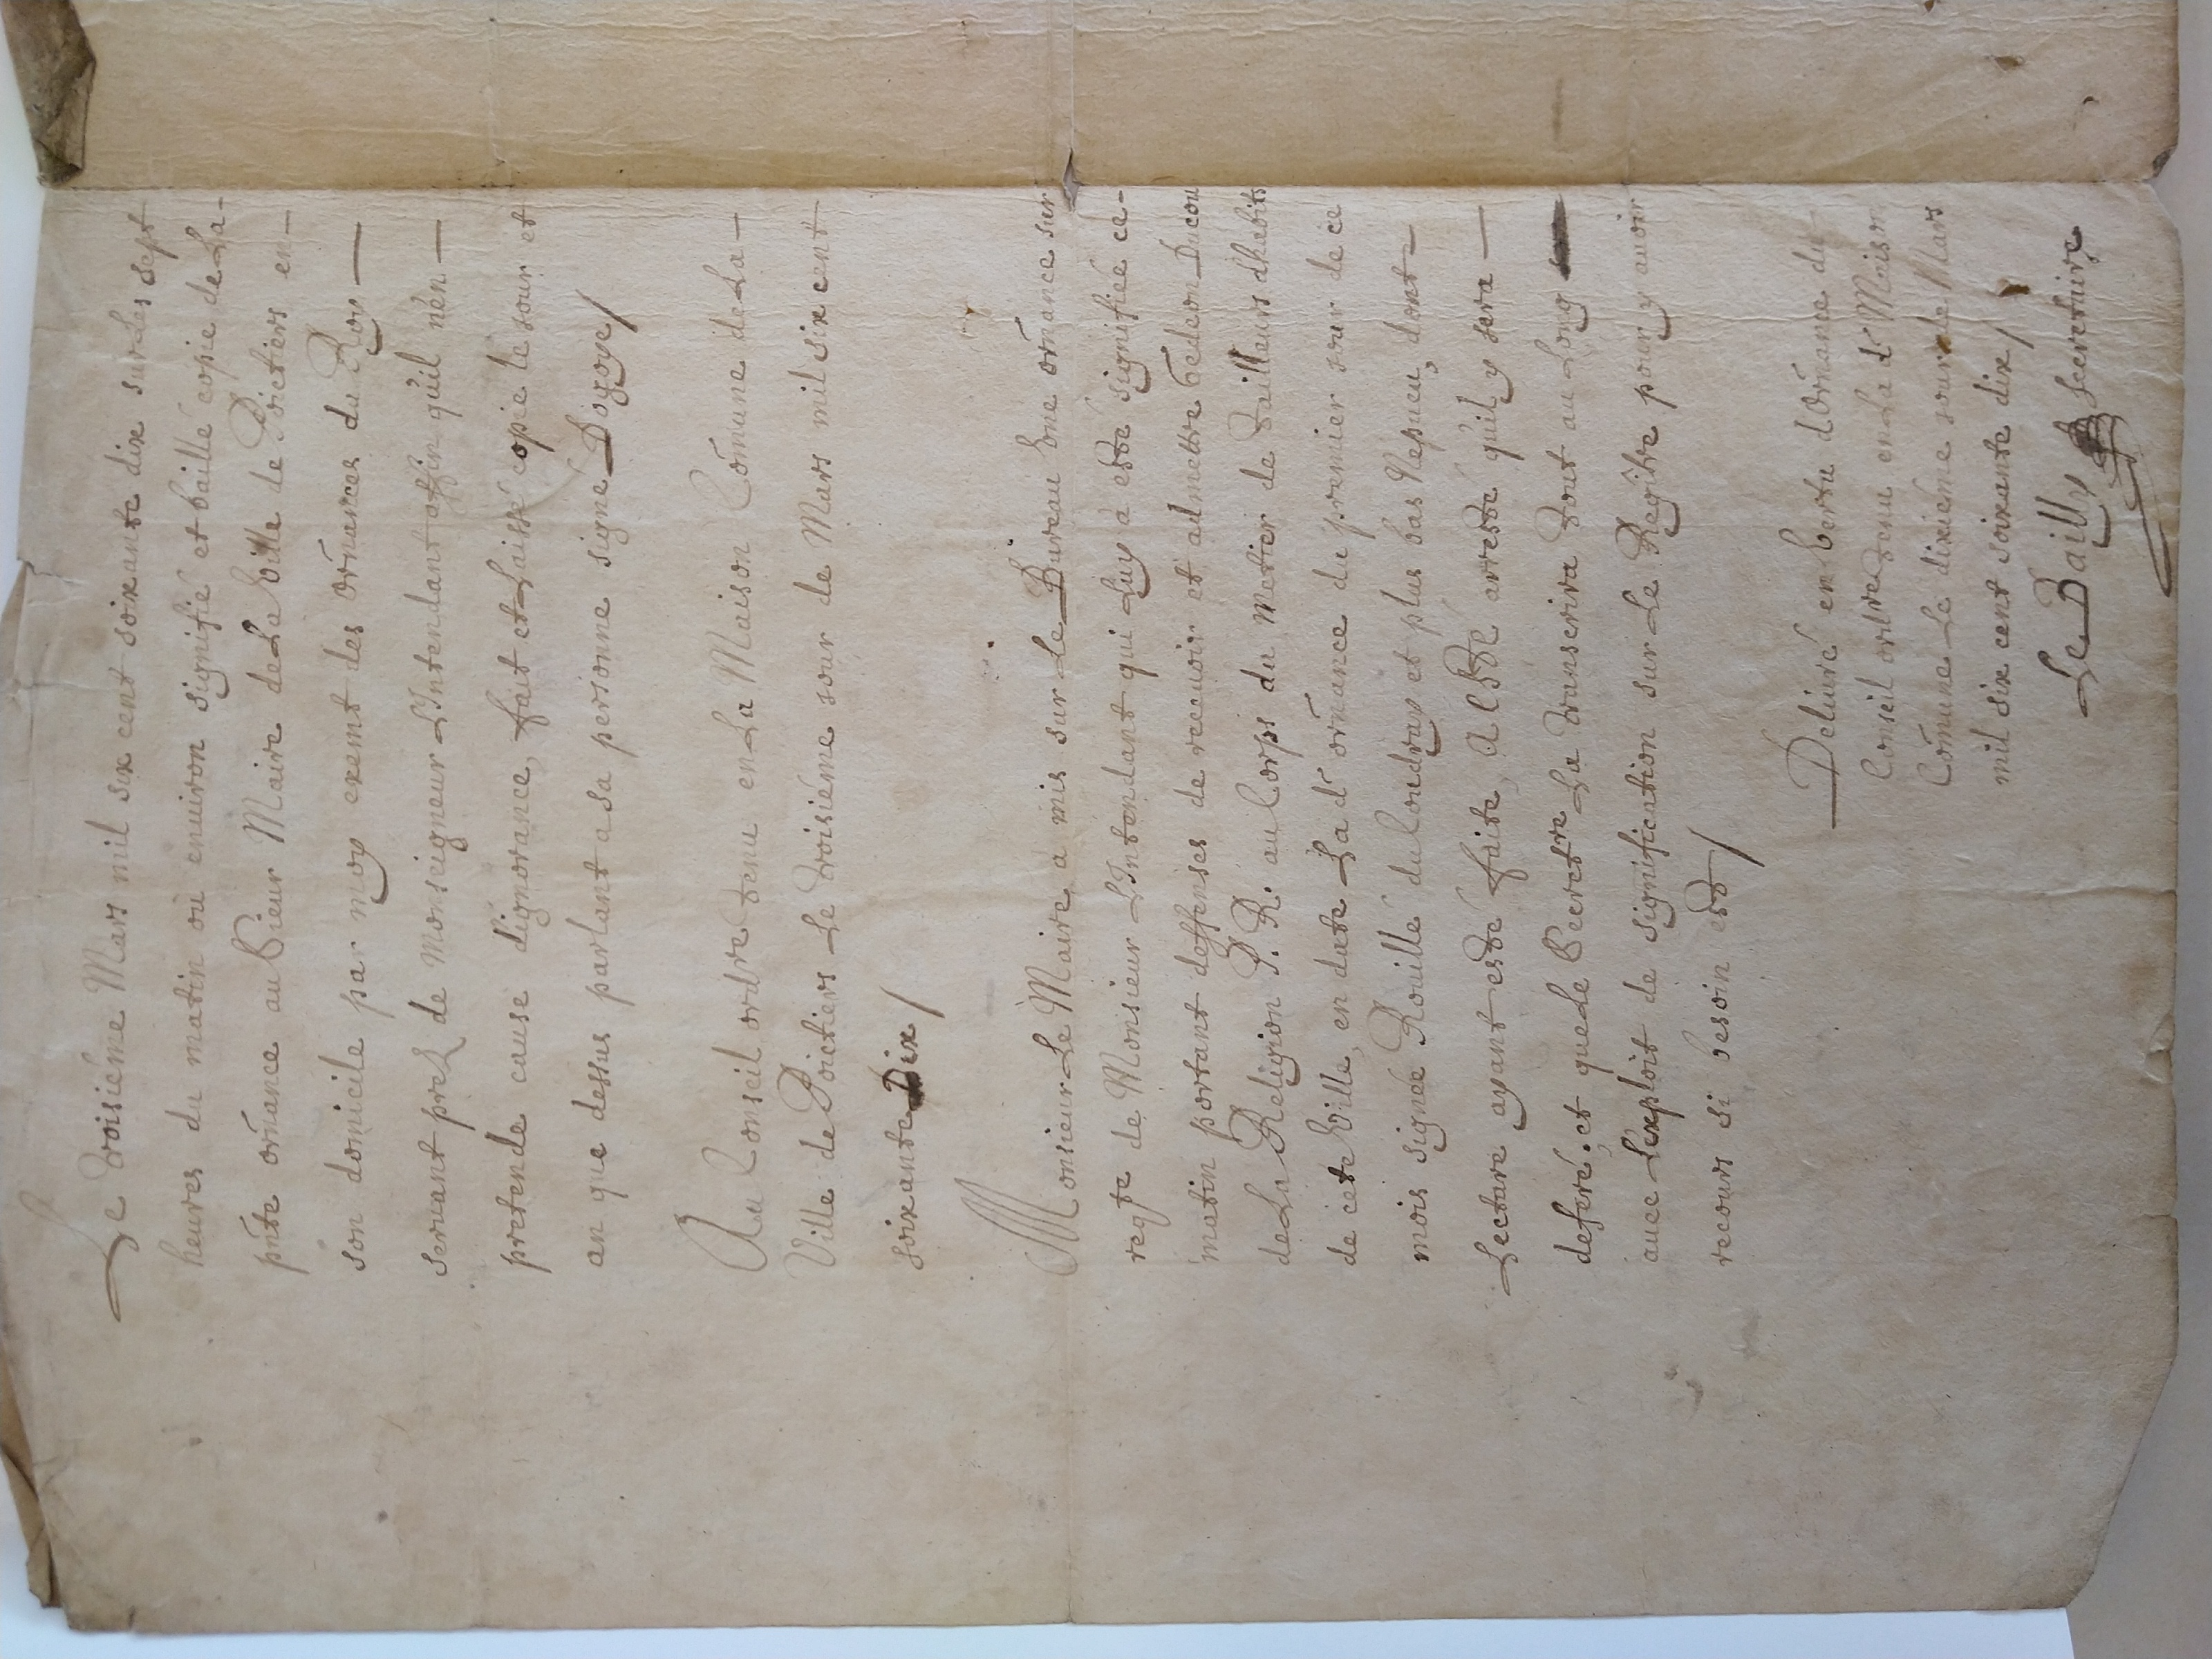 Le troisiéme Mars mil six cent soixante dix sur les sept
heures du matin ou enuiron signifié et baillé copie de La-
pñte orñance au Sieur Maire de La Ville de Poictiers en-
son domicile par moy exemt des orñances du Roy
seruant prez de Monseigneur L'Intendant affin qu'il n'en
pretende cause d'ignorance, fait et Laissé copie le iour et
an que dessus parlant a sa personne signe Dozoye/
Au Conseil ordre tenu en La Maison Com̃une de La
Ville de Poictiers Le troisiéme iour de Mars mil six cent
soixante Dix/
Monsieur Le Maire a mis sur Le Bureau Vne orñance sur
reqte de Monsieur L'Intendant qui Luy a esté signifiée ce-
matin portant deffenses de receuoir et admettre Gedeon Ducou
de La Religion P. R. au Corps du Mettier de Tailleurs d'habits
de cete Ville, en date La dt orñance du premier iour de ce
mois signée Rouillé du Coudray et plus bas Repueu, dont
Lecture ayant esté faite, A ESTE arresté qu'il y sera
deferé. et que Le Secretre La transcrira tout au Long
auec L'exploit de signification sur Le Regitre pour y auoir
recours si besoin est/
Deliuré en Vertu d'orñance du
Conseil ordre tenu en La dt Maison
Com̃une Le dixiéme iour de Mars
mil six cent soixante dix/
Le Bailly Secretaire